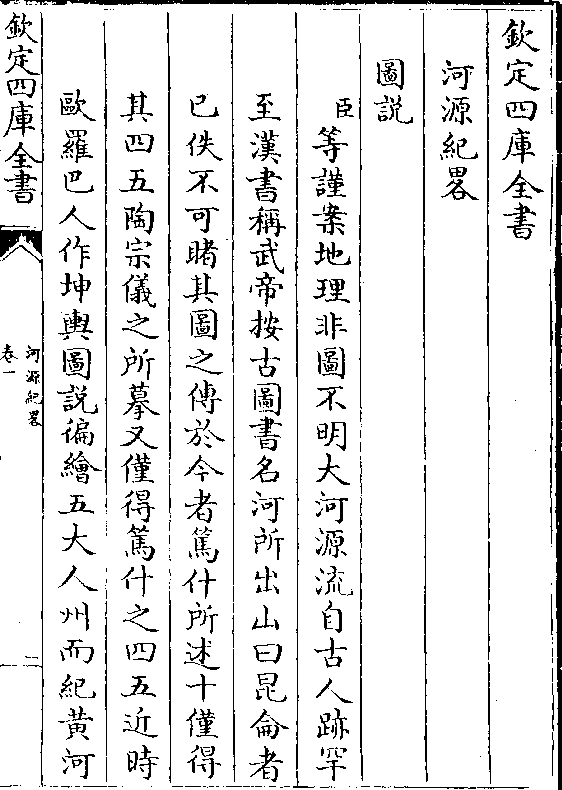 欽定四庫全書
河源紀畧
圖説
臣等謹案地理非圖不明大河源流自古人跡罕
至漢書稱武帝按古圖書名河所出山曰昆侖者
已佚不可睹其圖之傳於今者篤什所述十僅得
其四五陶宗儀之所摹又僅得篤什之四五近時
歐羅巴人作坤輿圖説徧繪五大人州而紀黄河
欽定四庫全書
河源紀畧
卷一
二